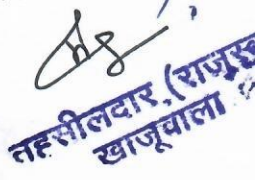 तहसीलदार (राजस्व)
खाजूवाला